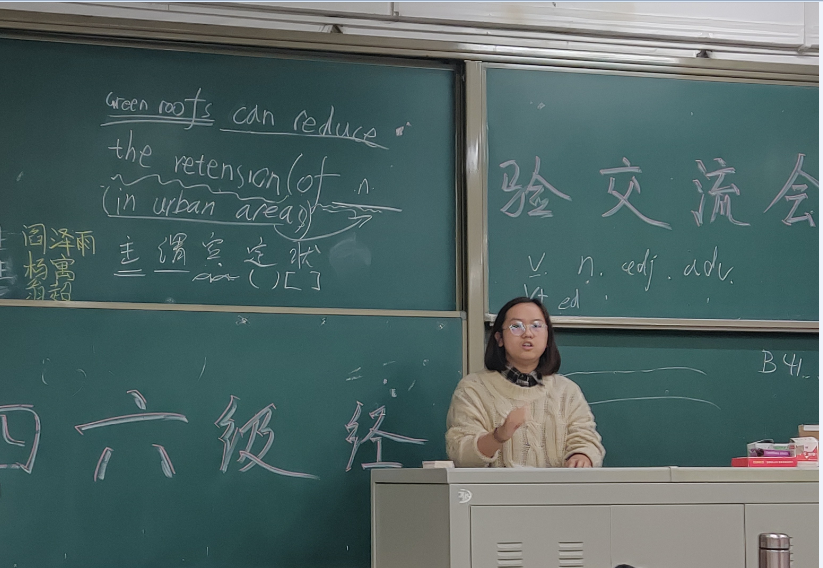 Green roofs can reduce
the retension (of n.
(in urban areas)
主 谓 宾 定 状
( ) [ ]
阎泽雨
杨寓
翁超
四六级经
验交流会
v. n. adj. adv.
v+ed
B41